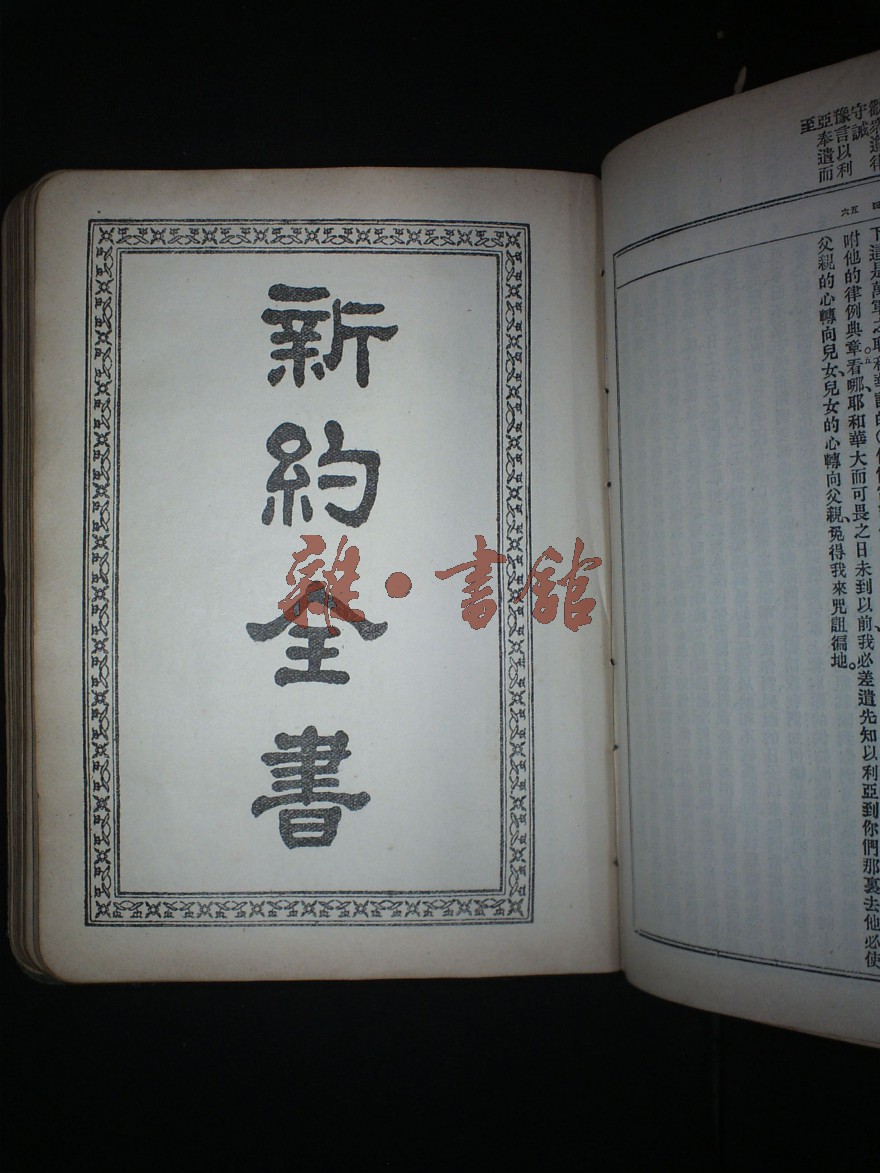 勸衆遵律
守誡
豫言以利
亞奉遣而
至
四
五
六
下這是萬軍之耶和華說的
咐他的律例典章看哪耶和華大而可畏之日未到以前我必差遣先知以利亞到你們那裏去他必使
父親的心轉向兒女、兒女的心轉向父親、免得我來咒詛徧地。
新約全書
雜·書館